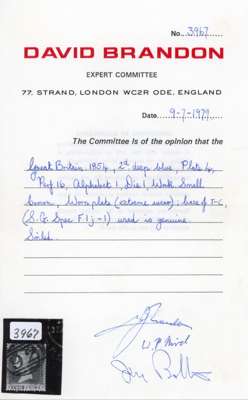 No. 3967
DAVID BRANDON
EXPERT COMMITTEE
77, STRAND, LONDON WC2R ODE, ENGLAND
Date 9-7-1979
The Committee is of the opinion that the
Great Britain 1854, 2d deep blue, Plate 4,
Perf 16, Alphabet 1, Die 1, Wmk Small
Crown, Worn plate (extreme wear): have of T-C,
(S.G. Spec F1j-1) used is genuine.
3967